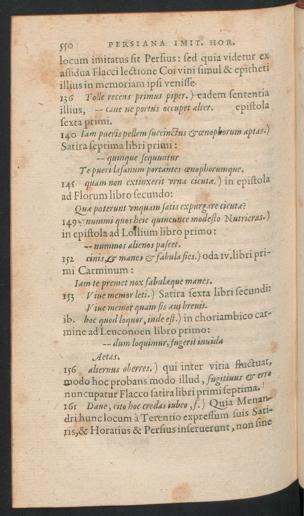 550 PERSIANA IMIT. HOR.
locum imitatus sit Persius: sed quia videtur ex
assidua Flacci lectione Coi vini simul & epitheti
illius in memoriam ipsi venisse.
136 Tolle recens primus piper.) eadem sententia
illius, -- caue ne portus occupet alter. epistola
sexta primi.
140 Iam pueris pellem succinctus & œnophorum aptas.)
Satira septima libri primi:
-- quinque sequuntur
Te pueri lasanum portantes œnophorumque.
145 quam non extinxerit vrna cicutæ.) in epistola
ad Florum libro secundo:
Quæ poterunt vnquam satis expurgare cicutæ?
149 nummi quos heic quincunce modesto Nutrieras.)
in epistola ad Lollium libro primo:
-- nummos alienos pascet.
152 cinis & manes & fabula fies.) oda IV. libri pri-
mi Carminum:
Iam te premet nox fabulæque manes.
153 Viue memor leti.) Satira sexta libri secundi:
Viue memor quam sis æui breuis.
ib. hoc quod loquor, inde est.) in choriambico car-
mine ad Leuconoen libro primo:
-- dum loquimur, fugerit inuida
Aetas.
156 alternus oberres.) qui inter vitia fluctuat,
modo hoc probans modo illud, fugitiuus & erro
nuncupatur Flacco satira libri primi septima.
161 Daue, cito hoc credas iubeo, s.) Quia Menan-
dri hunc locum à Terentio expressum suis Sati-
ris, & Horatius & Persius inseruerunt, non sine